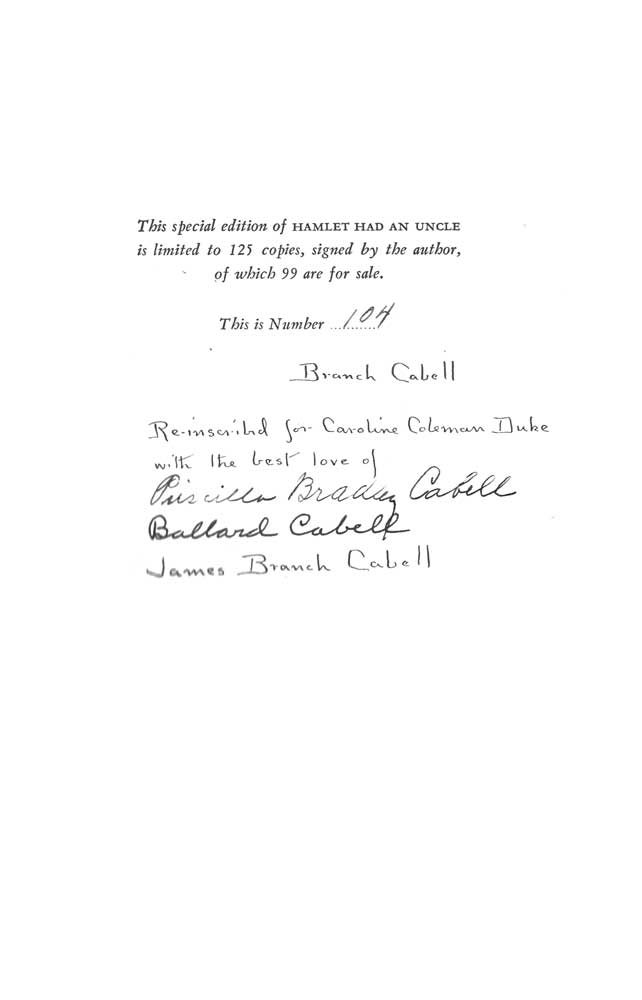 This special edition of HAMLET HAD AN UNCLE
is limited to 125 copies, signed by the author,
of which 99 are for sale.
This is Number ...104
Branch Cabell
Re-inscribed for Caroline Coleman Duke
with the best love of
Priscilla Bradley Cabell
Ballard Cabell
James Branch Cabell